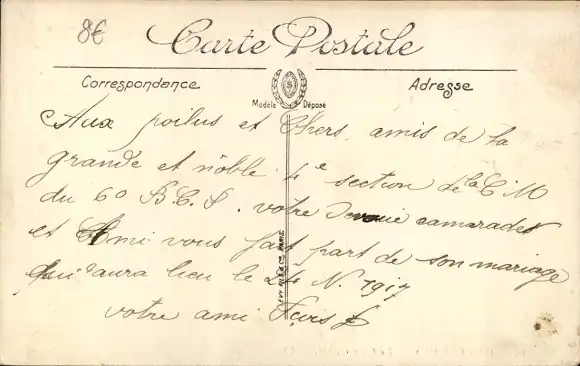 8€
Carte Postale
Correspondance
Adresse
Modèle Déposé
S
Aux poilus et Chers amis de la
grande et noble 4e section de la C M
du 60 B.C.P. votre camarades
et Ami vous fait part de son mariage
qui aura lieu le 24 N. 1917
votre ami